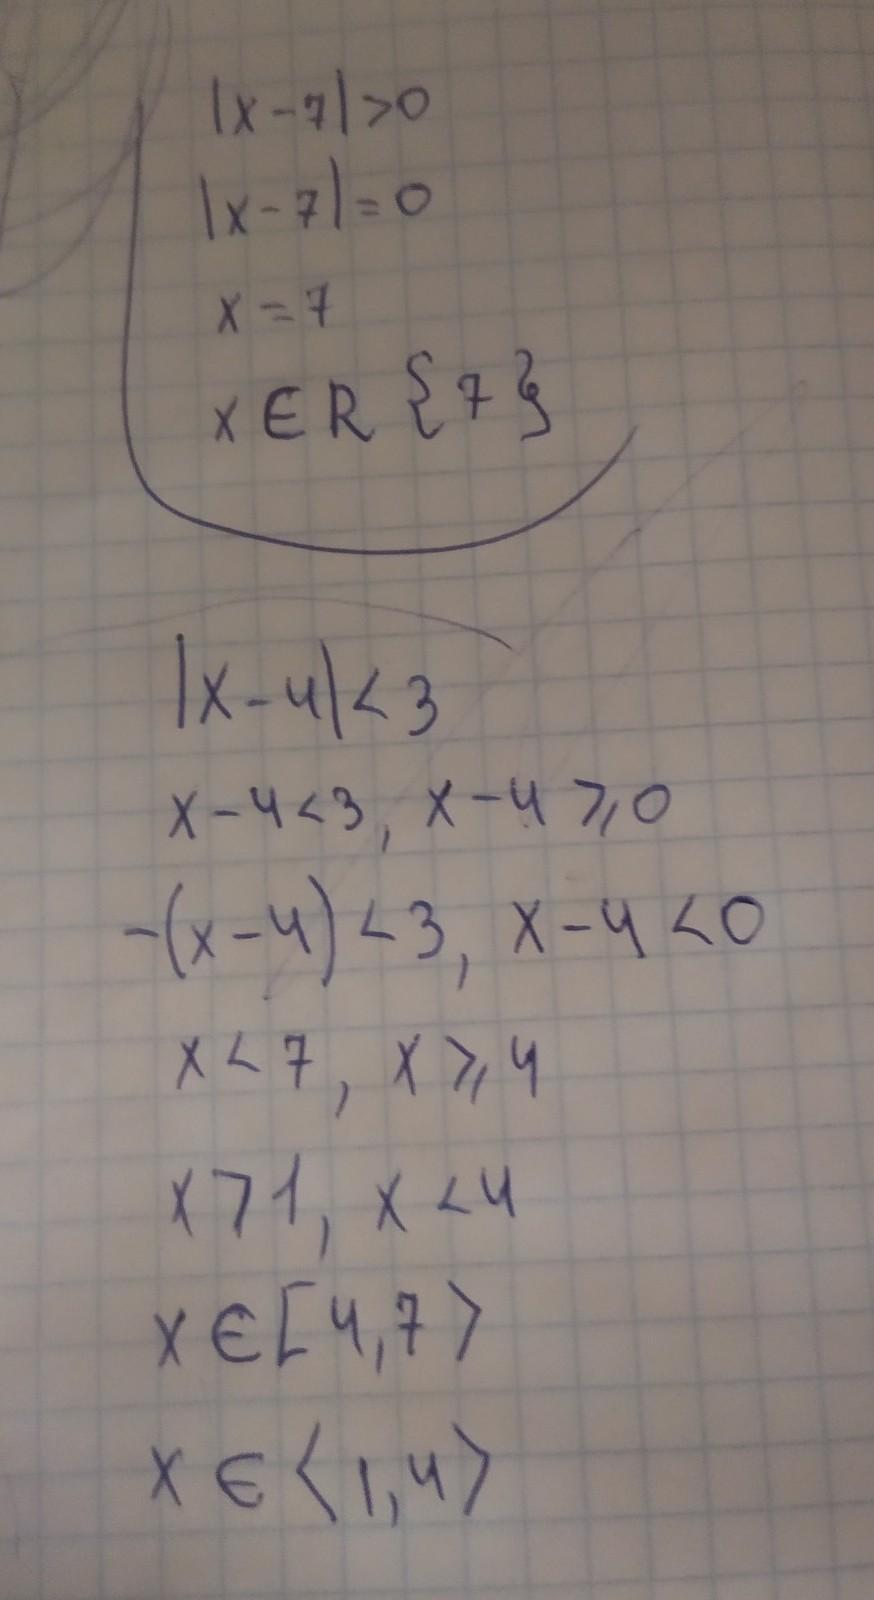 |x-7|>0
|x-7|=0
x=7
x∈R {7}
|x-4|<3
x-4<3, x-4⩾0
-(x-4)<3, x-4<0
x<7, x⩾4
x>1, x<4
x∈[4,7>
x∈<1,4>